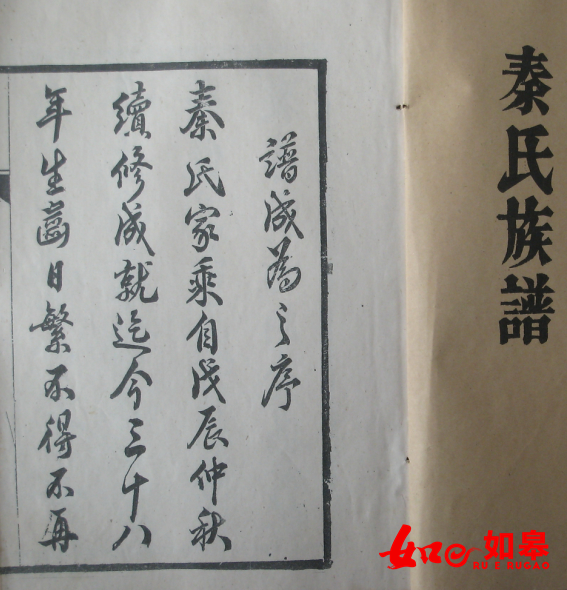 秦氏族譜
譜成為之序
秦氏家乘自戊辰仲秋
續修成就迄今三十八
年生齒日繁不得不再
如e 如皋
RU E RUGAO